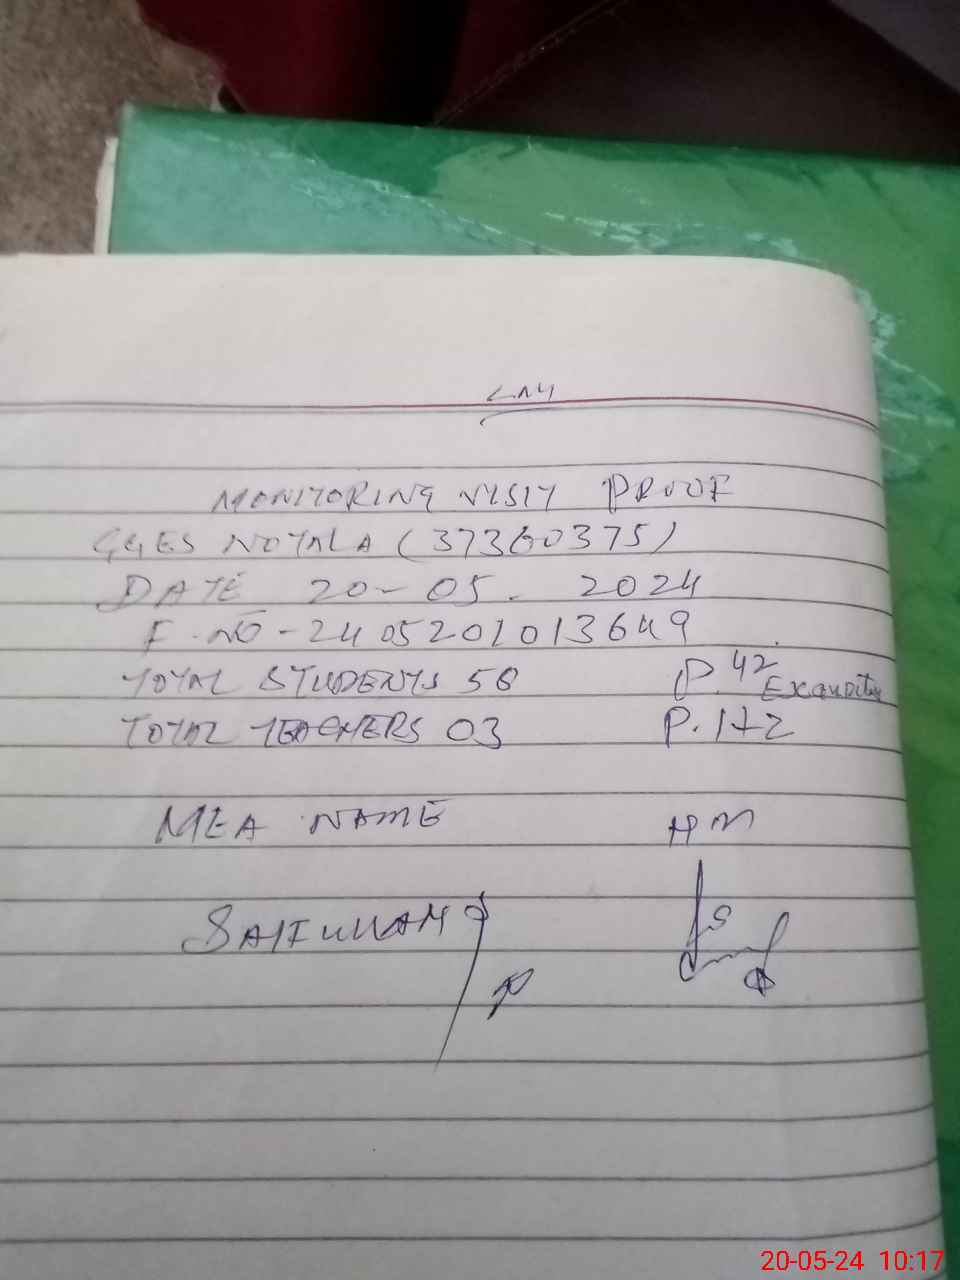 MONITORING VISIT PROOF
GGES NOTALA (37360375)
DATE 20-05. 2024
F. NO - 2405201013649
TOTAL STUDENTS 58 P. 42
TOTAL TEACHERS 03 P. 1+2
MEA NAME HM
SAIFULLAH
20-05-24 10:17